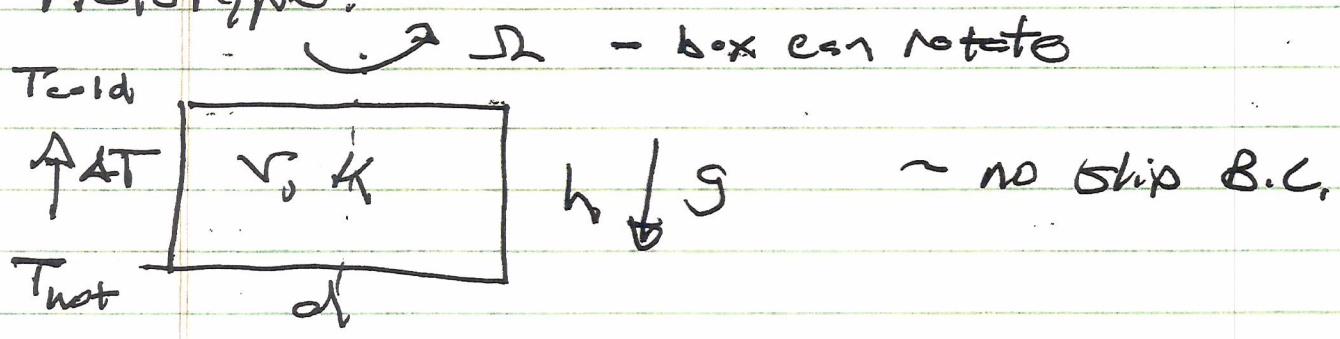 Prototype:
Ω - box can rotate
T cold
↑ ΔT ν, κ h ↓ g ~ no slip B.C.
T hot d